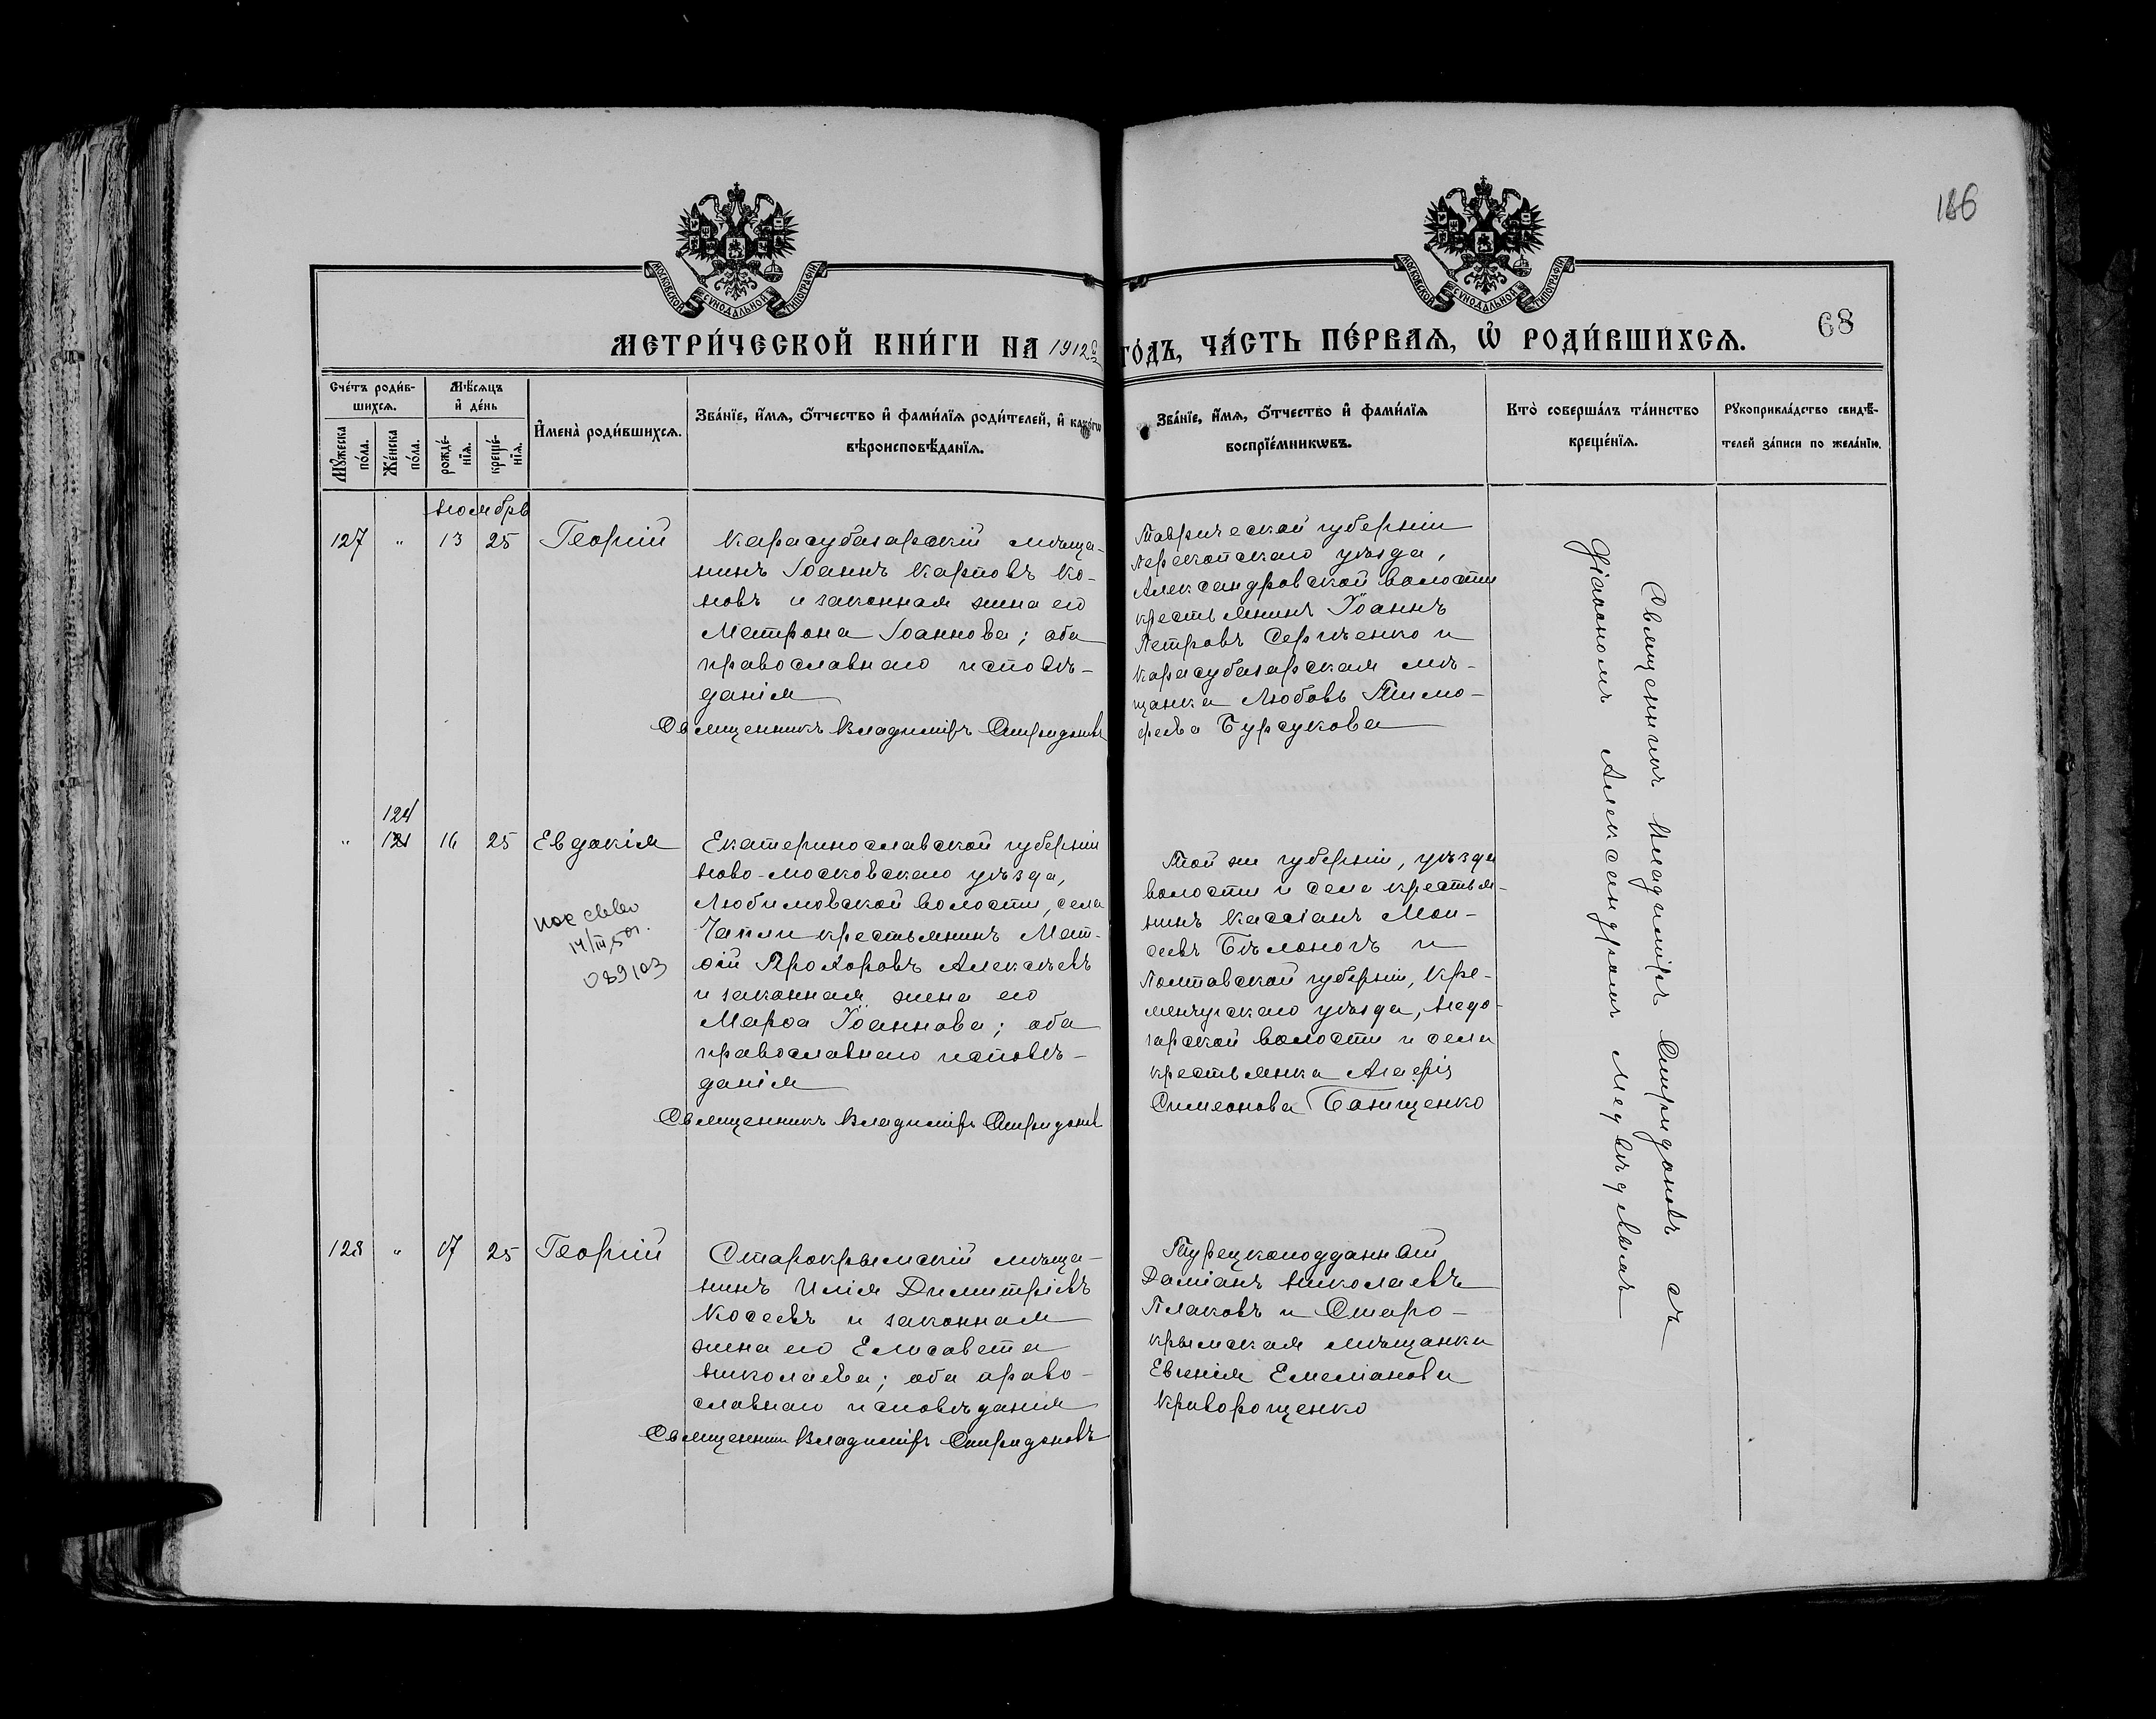 186
МОСКОВСКОЙ СѴНОДАЛЬНОЙ ТИПОГРАФІИ
МОСКОВСКОЙ СѴНОДАЛЬНОЙ ТИПОГРАФІИ
МЕТРИ́ЧЕСКОЙ КНИ́ГИ НА 1912
ГО́ДЪ, ЧА́СТЬ ПЕ́РВАѦ, Ѡ҆ РОДИ́ВШИХСѦ.
68
Сче́тъ роди́в-
шихсѧ.
Мꙋ́жеска по́ла.
Же́нска по́ла.
Мѣ́сѧцъ
и҆ де́нь
рожде́-
нїѧ.
креще́-
нїѧ.
И҆мена̀ роди́вшихсѧ.
Зва́нїе, и҆́мѧ, ѻ҆́тчество и҆ фами́лїѧ роди́телей, и҆ како́гѡ
вѣроисповѣ́данїѧ.
Зва́нїе, и҆́мѧ, ѻ҆́тчество и҆ фами́лїѧ
воспрїе́мникѡвъ.
Кто̀ соверша́лъ та́инство
креще́нїѧ.
Рꙋкоприкла́дство свидѣ́-
телей за́писи по жела́нїю.
Ноембрь
127 " 13 25 Георгій
Карасубазарскій мѣща-
нинъ Іоаннъ Карповъ Ко-
новъ и законная жена его
Матрона Іоаннова; оба
православнаго исповѣ-
данія
Священникъ Владиміръ Спиридоновъ
Таврической губерніи
Перекопскаго уѣзда,
Александровской волости
крестьянинъ Іоаннъ
Петровъ Сергіенко и
Карасубазарская мѣ-
щанка Любовь Тимо-
феева Бурсукова
124
" 121 16 25 Евдокія
14/III 50г.
089103
Екатеринославской губерніи
Ново-московскаго уѣзда,
Любимовской волости, села
Чапли крестьянинъ Мат-
ѳій Прохоровъ Алексѣевъ
и законная жена его
Марѳа Іоаннова; оба
православнаго исповѣ-
данія
Священникъ Владиміръ Спиридоновъ
Той же губерніи, уѣзда
волости и села крестья-
нинъ Кассіанъ Мои-
сеевъ Бѣлоногъ и
Полтавской губерніи, Кре-
менчугскаго уѣзда, Недо-
гарской волости и села
крестьянка Марія
Симеонова Банищенко
128 " 17 25 Георгій
Старокрымскій мѣща-
нинъ Илія Димитріевъ
Косеевъ и законная
жена его Елисавета
Николаева; оба право-
славнаго исповѣданія
Священникъ Владиміръ Спиридоновъ
Турецкоподданный
Даміанъ Николаевъ
Плаковъ и Старо-
крымская мѣщанка
Евгенія Емеліанова
Криворощенко
Священникъ Владиміръ Спиридоновъ съ
Діакономъ Александромъ Медвѣдевымъ